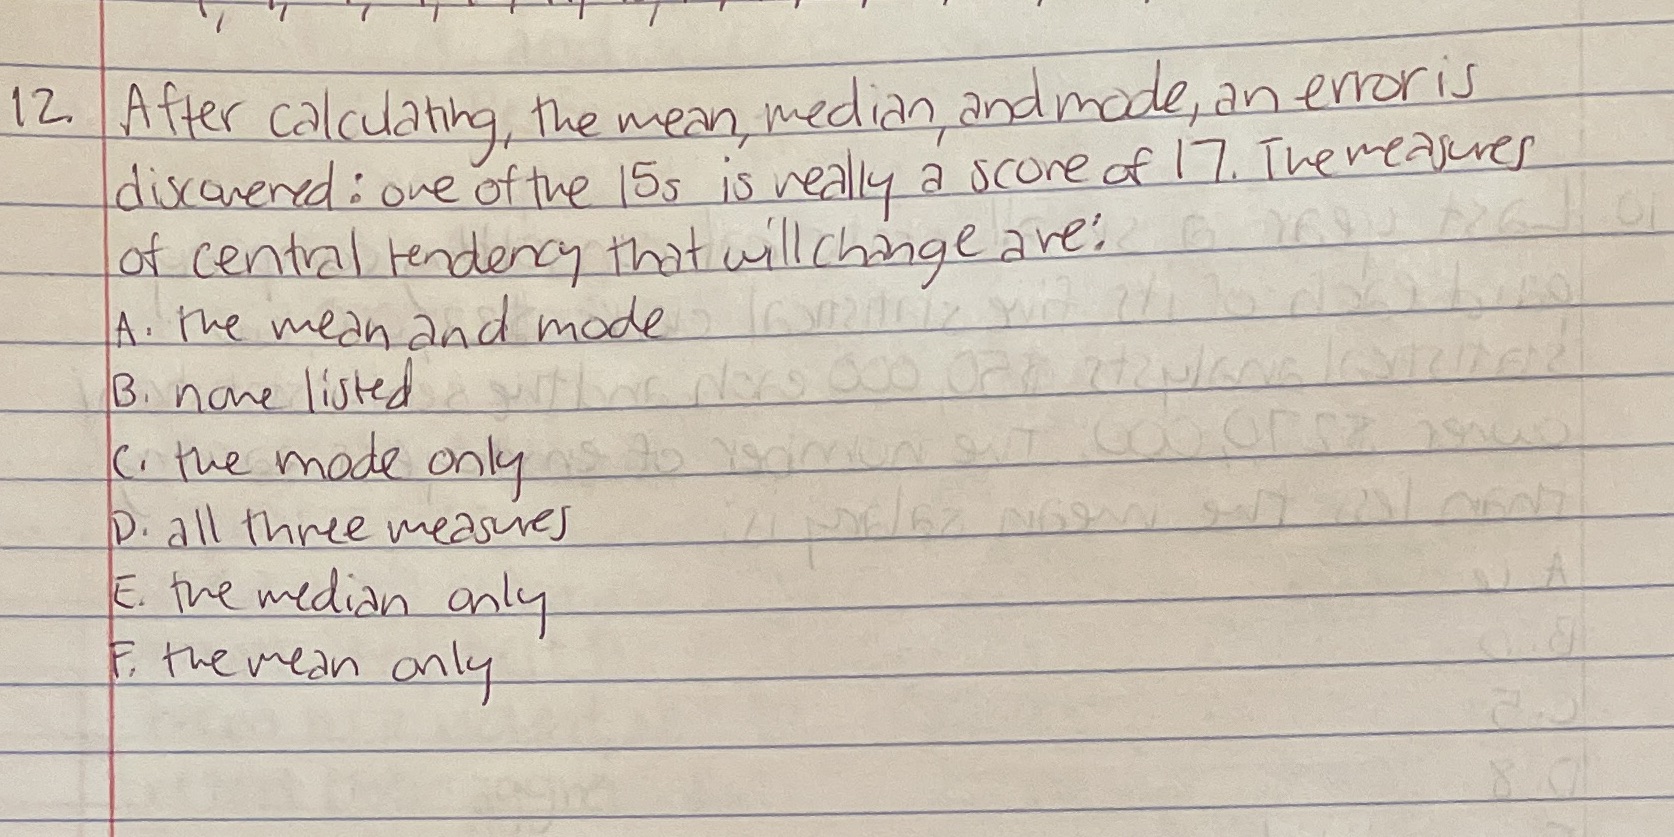 12. After calculating, the mean, median, and mode, an error is
discovered: one of the 15s is really a score of 17. The measures
of central tendency that will change are:
A. the mean and mode
B. none listed
C. the mode only
D. all three measures
E. the median only
F. the mean only